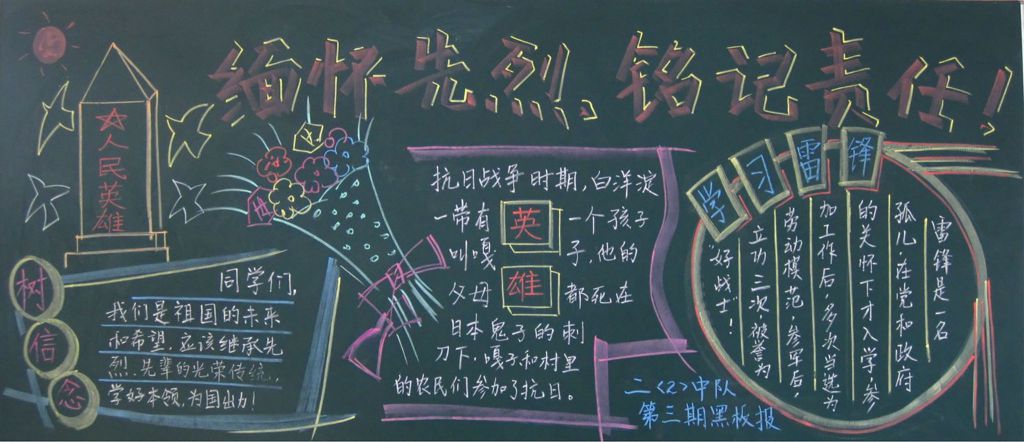 缅怀先烈、铭记责任!
人民英雄
树信念
同学们,
我们是祖国的未来
和希望,应该继承先
烈、先辈的光荣传统,
学好本领,为国出力!
英雄
抗日战争时期,白洋淀
一带有一个孩子
叫嘎子,他的
父母都死在
日本鬼子的刺
刀下。嘎子和村里
的农民们参加了抗日。
学习雷锋
雷锋是一名
孤儿,在党和政府
的关怀下才入学,参
加工作后,多次当选为
劳动模范,参军后,
立功三次,被誉为
好战士!
二<2>中队
第三期黑板报